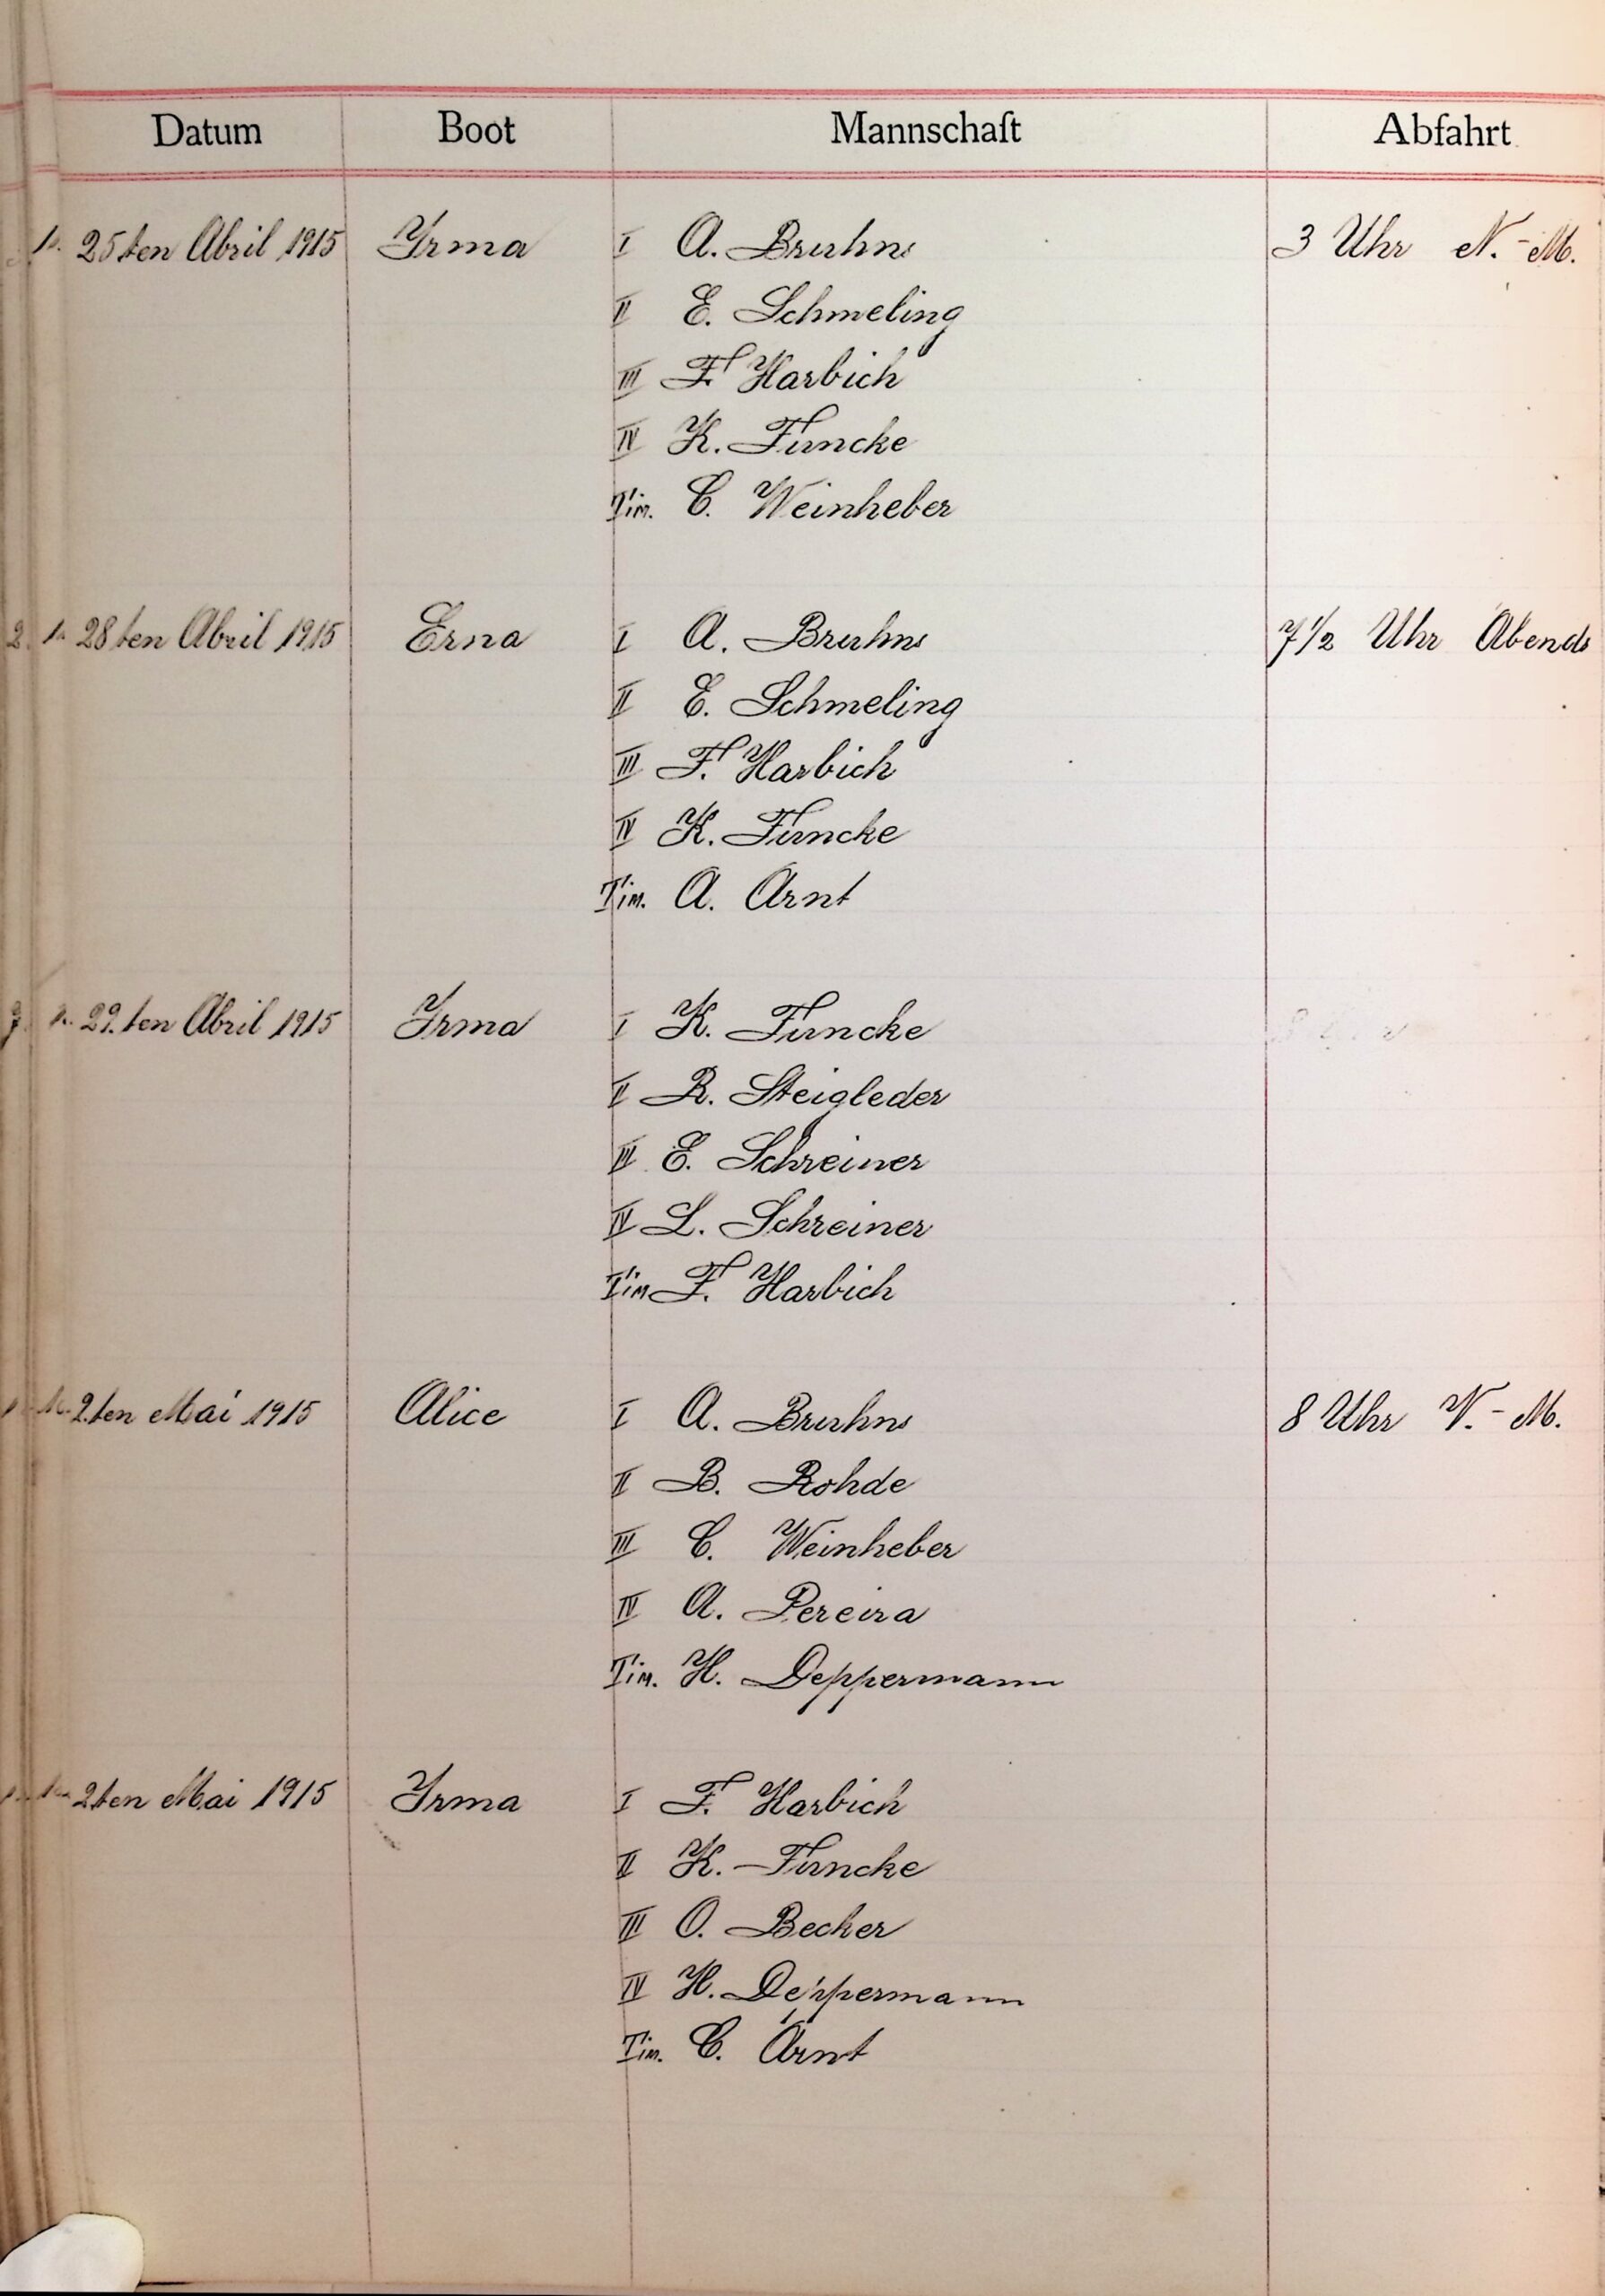 Datum Boot Mannschaft Abfahrt
1. 25ten Abril 1915 Yrma I A. Bruhns 3 Uhr N.-M.
II E. Schmeling
III F. Harbich
IV K. Funcke
Tim. C. Weinheber
2. 1. 28ten Abril 1915 Erna I A. Bruhns 7 1/2 Uhr Abends
II E. Schmeling
III F. Harbich
IV K. Funcke
Tim. A. Arnt
29.ten Abril 1915 Yrma I K. Funcke
II R. Steigleder
III E. Schreiner
IV L. Schreiner
Tim F. Harbich
2.ten Mai 1915 Alice I A. Bruhns 8 Uhr V.-M.
II B. Rohde
III C. Weinheber
IV A. Pereira
Tim. H. Deppermann
2ten Mai 1915 Yrma I F. Harbich
II K. Funcke
III O. Becker
IV H. Deppermann
Tim. C. Arnt